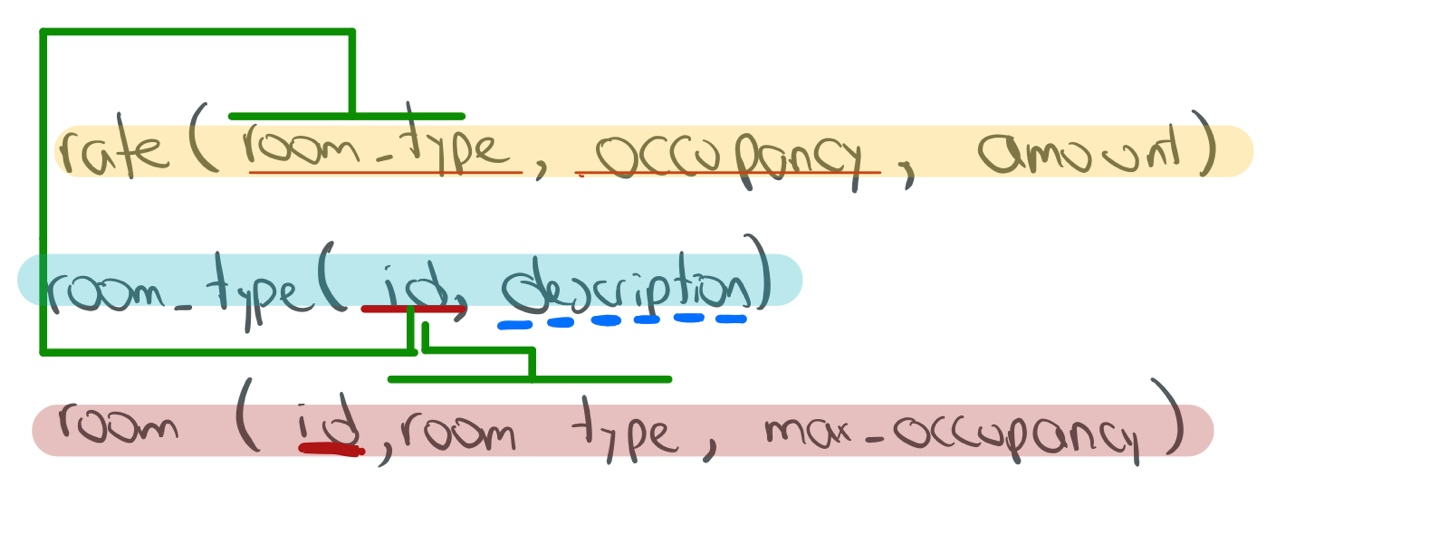 rate ( room_type , occupancy , amount )
room_type ( id, description )
room ( id, room type , max_occupancy )